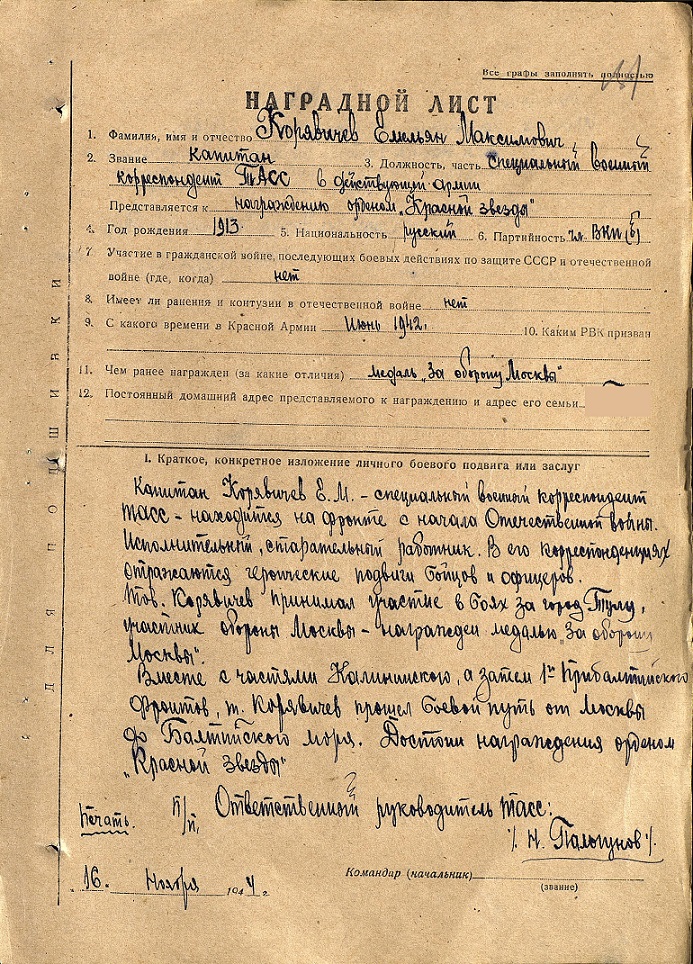 Все графы заполнять полностью
НАГРАДНОЙ ЛИСТ
1. Фамилия, имя и отчество Корявичев Емельян Максимович
2. Звание капитан 3. Должность, часть специальный военный
корреспондент ТАСС в действующей армии
Представляется к награждению орденом „Красной звезды"
4. Год рождения 1913 5. Национальность русский 6. Партийность чл. ВКП(б)
7. Участие в гражданской войне, последующих боевых действиях по защите СССР и отечественной
войне (где, когда) нет
8. Имеет ли ранения и контузии в отечественной войне нет
9. С какого времени в Красной Армии Июнь 1942. 10. Каким РВК призван
11. Чем ранее награжден (за какие отличия) медаль „За оборону Москвы"
12. Постоянный домашний адрес представляемого к награждению и адрес его семьи
I. Краткое, конкретное изложение личного боевого подвига или заслуг
Капитан Корявичев Е.М. – специальный военный корреспондент
ТАСС – находится на фронте с начала Отечественной войны.
Исполнительный, старательный работник. В его корреспонденциях
отражаются героические подвиги бойцов и офицеров.
Тов. Корявичев принимал участие в боях за город Тулу,
участник обороны Москвы – награжден медалью „За оборону
Москвы".
Вместе с частями Калининского, а затем 1го Прибалтийского
фронтов, т. Корявичев прошел боевой путь от Москвы
до Балтийского моря. Достоин награждения орденом
„Красной звезды"
Печать. п/п. Ответственный руководитель ТАСС:
/. Н. Пальгунов ./.
16. Ноября 1944 г.
Командир (начальник)
(звание)
ДЛЯ ПОДШИВКИ